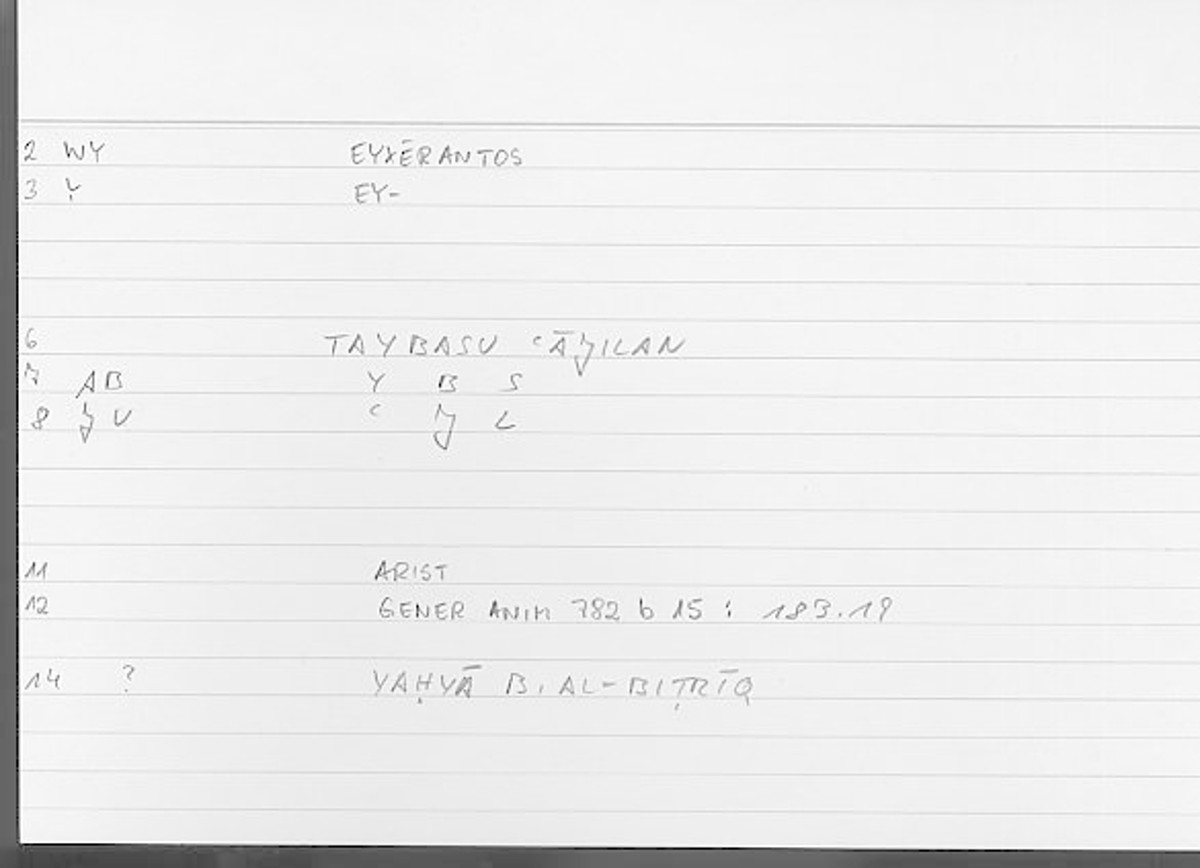 2 WY EYXĒRANTOS
3 Ỵ EY-
6 TAYBASU ʿĀǦILAN
7 AB Y B S
8 Ǧ U ʿ Ǧ L
11 ARIST
12 GENER ANIM 782 b 15 : 183.19
14 ? YAḤYĀ B. AL-BIṬRĪQ